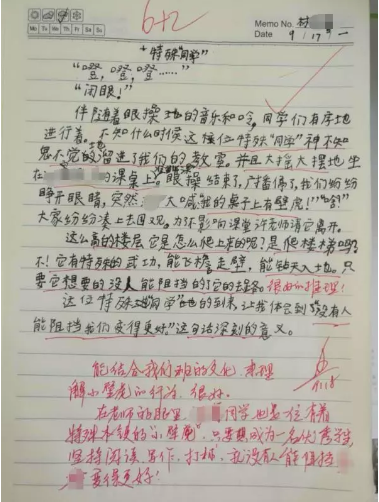 6+2
Memo No. 村
Mo Tu We Th Fr Sa Su
Date 9/17 一
“特殊“同学”
“噔,噔,噔……”
“闭眼!”
伴随着眼操的音乐和口令,同学们有序地
进行着。不知什么时候这位特殊“同学”神不知
鬼不觉的溜进了我们的教室。并且大摇大摆地坐
在的课桌上。眼操结束了,广播停了,我们纷纷
睁开眼睛,突然,大喊“我的桌子上有壁虎!”“哈”
大家纷纷凑上去围观。为了不影响课堂许老师请它离开。
这么高的楼层它是怎么爬上来的呢?是爬楼梯吗?
不!它有特殊的武功,能飞檐走壁,能钻天入地。只
要它想要的没人能阻挡的了它的道路。很好的推理!
这位特殊“同学”的到来,让我体会到“没有人
能阻挡我们变得更好”这句话深刻的意义。
能结合我们班的文化,来理
解小壁虎的行为,很好。
在老师的眼里,同学也是一位有着
特殊本领的“小壁虎”,只要想成为一名优秀学生
坚持阅读、写作、打卡,就没有人能阻挡
变得更好!